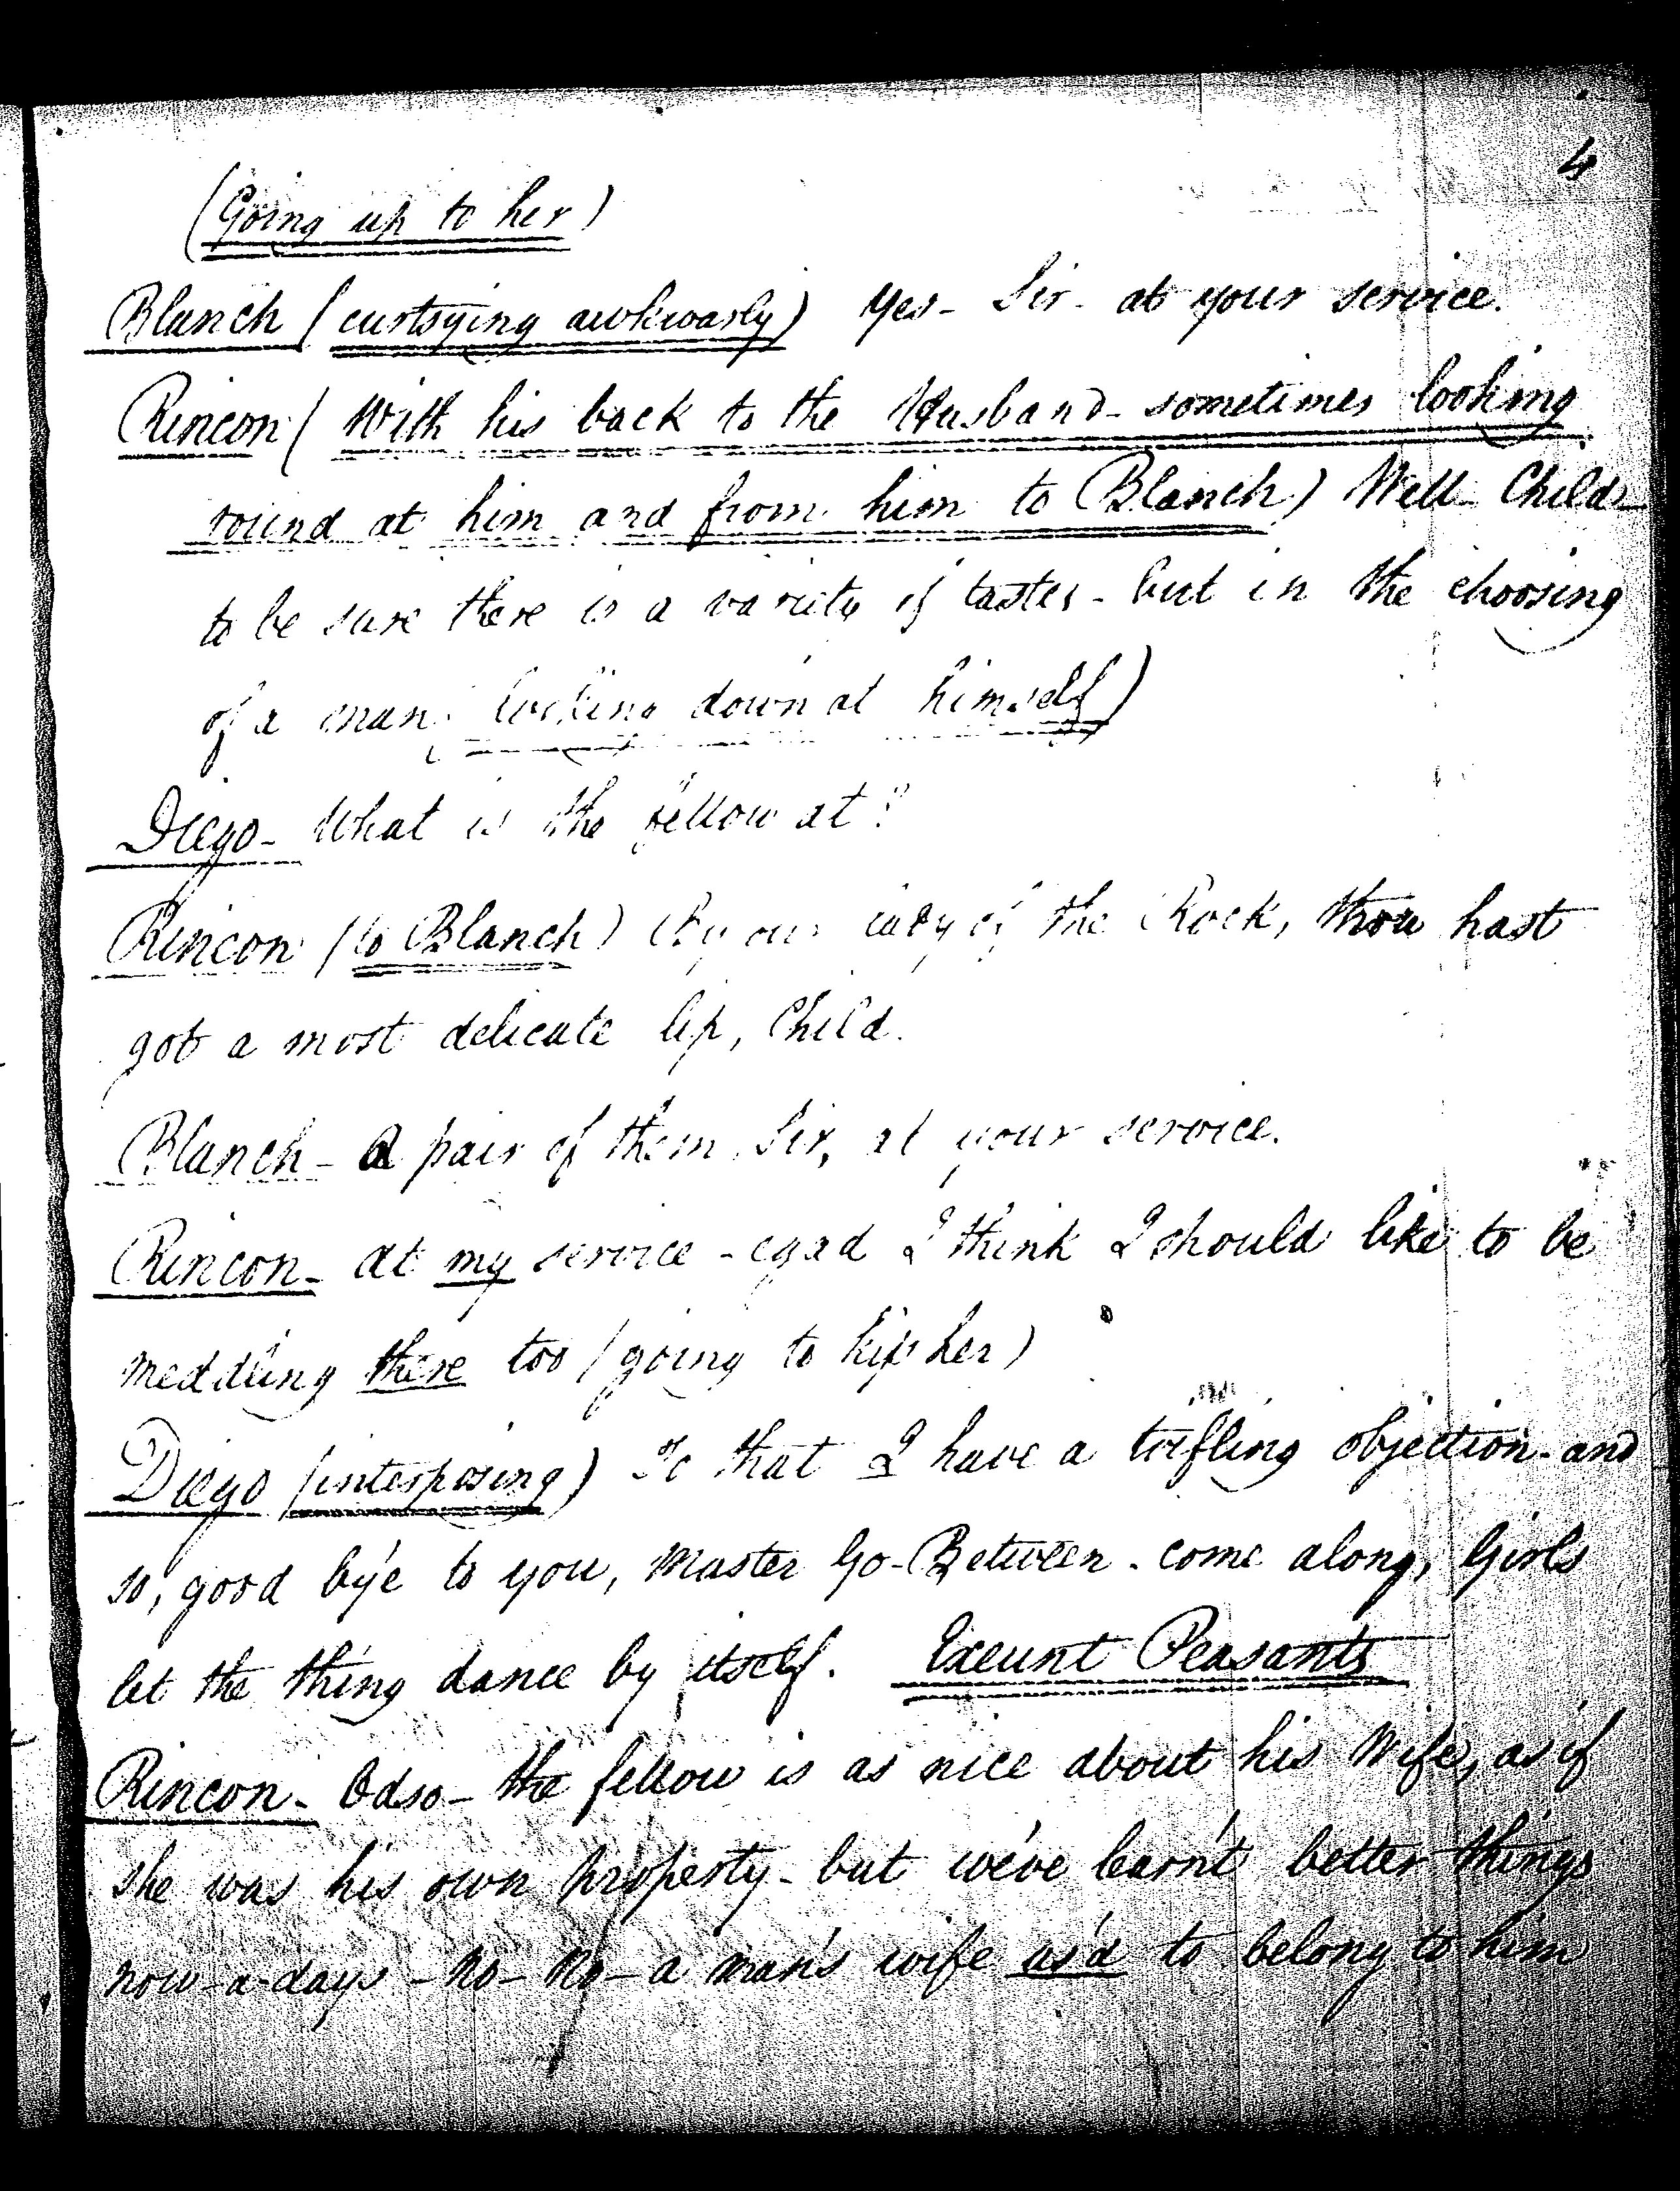 4
(Going up to her)
Blanch (curtsying awkwarly) Yes - Sir - at your service.
Rincon (With his back to the Husband - sometimes looking
round at him and from him to Blanch) Well Child -
to be sure there is a variety of tastes - but in the choosing
of a man (looking down at himself)
Diego - What is the fellow at?
Rincon (to Blanch) By our Lady of the Rock, thou hast
got a most delicate lip, Child.
Blanch - A pair of them, Sir, at your service.
Rincon - at my service - egad I think I should like to be
meddling there too (going to kiss her)
Diego (interposing) To that I have a trifling objection - and
so, good by'e to you, Master Go-Between - come along, Girls
let the thing dance by itself. Exeunt Peasants
Rincon - Odso - the fellow is as nice about his Wife, as if
she was his own property - but we've learn't better things
now-a-days - no - no - a man's wife us'd to belong to him